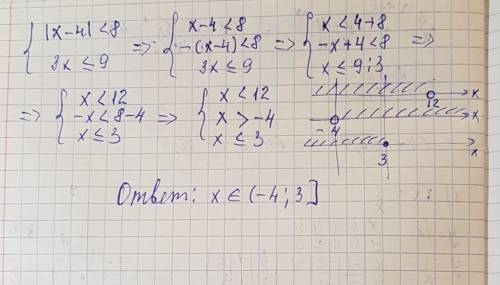 { |x-4| < 8
3x ≤ 9 => { x-4 < 8
-(x-4) < 8
3x ≤ 9 => { x < 4+8
-x+4 < 8
x ≤ 9:3 =>
=> { x < 12
-x < 8-4
x ≤ 3 => { x < 12
x > -4
x ≤ 3
12 x
-4 x
3 x
Ответ: x ∈ (-4; 3]